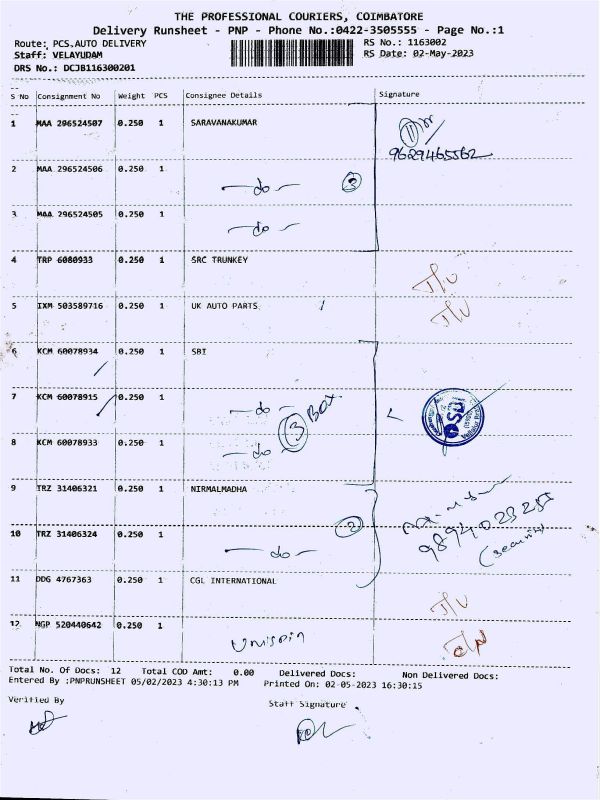 THE PROFESSIONAL COURIERS, COIMBATORE
Delivery Runsheet - PNP - Phone No.:0422-3505555 - Page No.:1
Route: PCS,AUTO DELIVERY RS No.: 1163002
Staff: VELAYUDAM RS Date: 02-May-2023
DRS No.: DCJB116300201
S No Consignment No Weight PCS Consignee Details Signature
1 MAA 296524507 0.250 1 SARAVANAKUMAR
9629465562
2 MAA 296524506 0.250 1
-do- 3
3 MAA 296524505 0.250 1
-do-
4 TRP 6080933 0.250 1 SRC TRUNKEY
5 IXM 503589716 0.250 1 UK AUTO PARTS
6 KCM 60078934 0.250 1 SBI
7 KCM 60078915 0.250 1
-do- 3 BOX
8 KCM 60078933 0.250 1
-do-
9 TRZ 31406321 0.250 1 NIRMALMADHA
10 TRZ 31406324 0.250 1 2
-do- (Security)
11 DDG 4767363 0.250 1 CGL INTERNATIONAL
12 NGP 520440642 0.250 1
Unispin
Total No. Of Docs: 12 Total COD Amt: 0.00 Delivered Docs: Non Delivered Docs:
Entered By :PNPRUNSHEET 05/02/2023 4:30:13 PM Printed On: 02-05-2023 16:30:15
Verified By Staff Signature